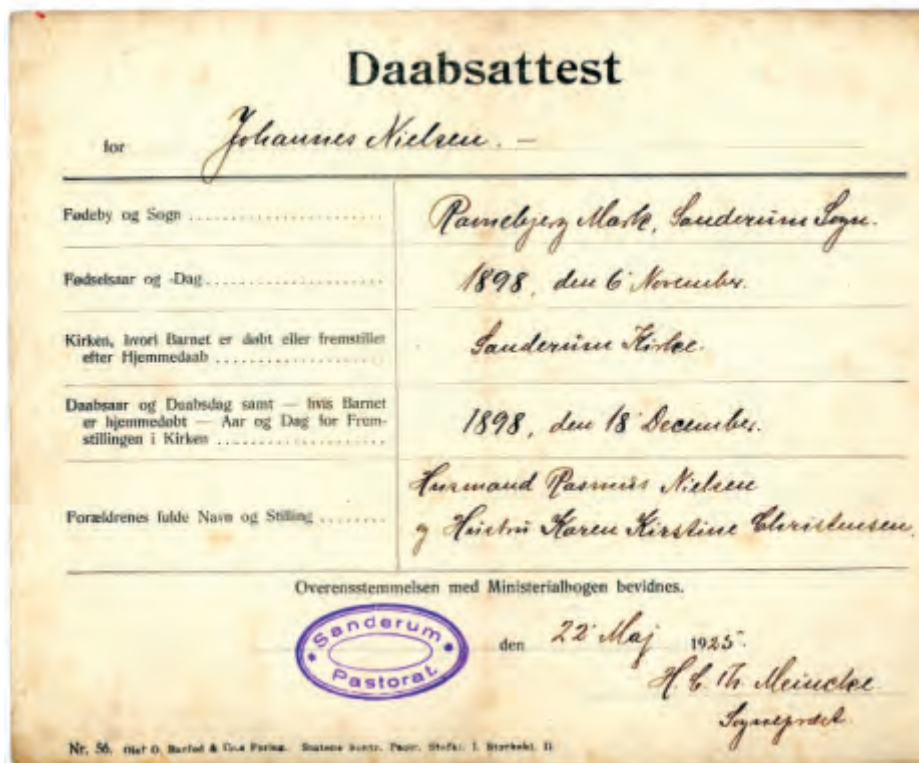 Daabsattest
for Johannes Nielsen. —
Fødeby og Sogn Ravnebjerg Mark, Sanderum Sogn.
Fødselsaar og -Dag 1898, den 6 November.
Kirken, hvori Barnet er døbt eller fremstillet
efter Hjemmedaab Sanderum Kirke.
Daabsaar og Daabsdag samt — hvis Barnet
er hjemmedøbt — Aar og Dag for Frem-
stillingen i Kirken 1898, den 18 December.
Forældrenes fulde Navn og Stilling Husmand Rasmus Nielsen
og Hustru Karen Kirstine Christensen.
Overensstemmelsen med Ministerialbogen bevidnes.
Sanderum Pastorat
den 22 Maj 1925.
H. C. Th. Meincke
Sognepræst.
Nr. 56. Olaf O. Barfod &